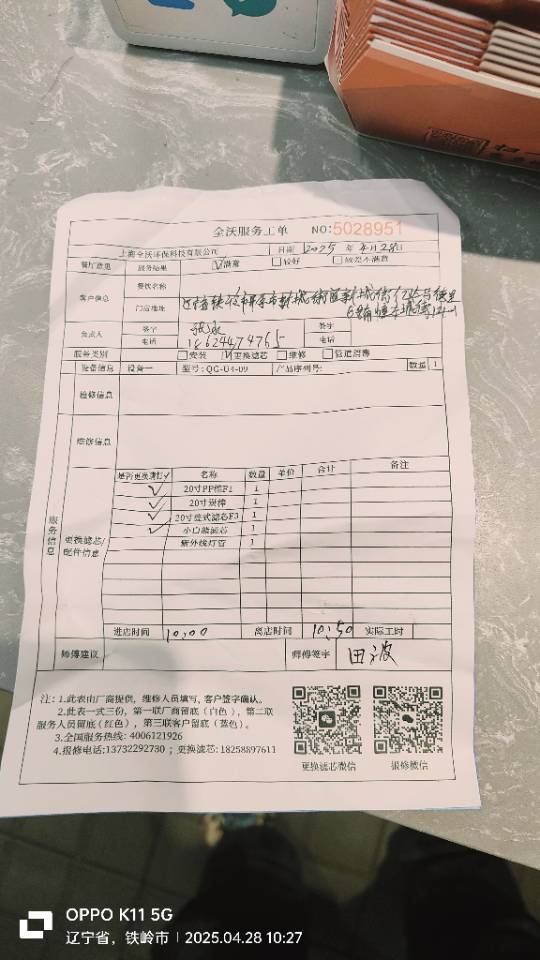 全沃服务工单 NO:5028951
上海全沃环保科技有限公司 日期 2025 年 4月28日
餐厅意见 服务结果 ☑满意 □较好 □以上不满意
客户信息 餐饮名称
门店地址
负责人 签字 签字
电话 18624474765 电话
服务类别 □安装 ☑更换滤芯 □维修 □
设备信息 设备一 型号:QG-U4-09 产品序列号: 数量 1
检修信息
维修信息
服务信息
更换滤芯/配件信息
是否更换请打✓ 名称 数量 单价 合计 备注
✓ 20寸PP棉F1 1
✓ 20寸碳棒 1
✓ 20寸 滤芯F3 1
✓ 小白 滤芯 1
紫外线灯管 1
进店时间 10:00 离店时间 10:50 实际工时
师傅建议 师傅签字 田波
注:1.此表由厂商提供,维修人员填写,客户签字确认。
2.此表一式三份,第一联厂商留底(白色),第二联
服务人员留底(红色),第三联客户留底(蓝色)。
3.全国服务热线: 4006121926
4.报修电话:13732292730 ; 更换滤芯: 18258897611
更换滤芯微信 报修微信
OPPO K11 5G
辽宁省，铁岭市 | 2025.04.28 10:27